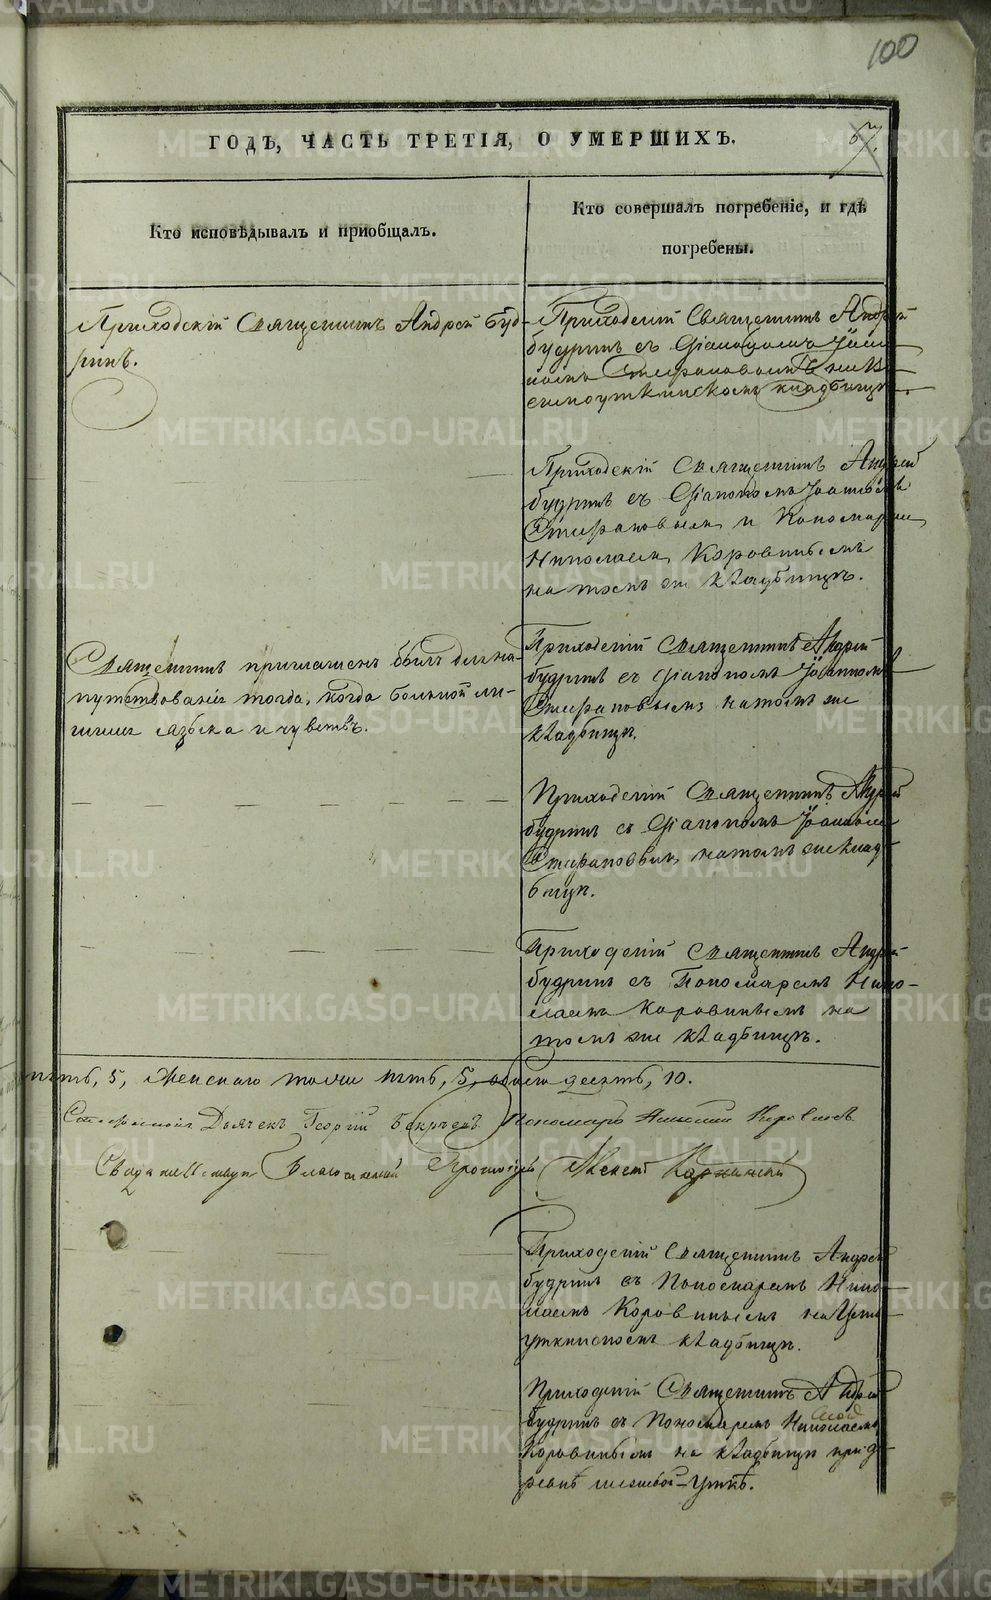 100
ГОДЪ, ЧАСТЬ ТРЕТІЯ, О УМЕРШИХЪ.
67.
Кто исповѣдывалъ и пріобщалъ.
Кто совершалъ погребеніе, и гдѣ
погребены.
Приходскій Священникъ Андрей Буд-
ринъ.
Приходскій Священникъ Андрей
Будринъ съ Діакономъ Іоан
номъ Стефановымъ на
кладбищѣ.
Приходскій Священникъ Андрей
Будринъ съ Діакономъ Іоанномъ
Стефановымъ и Пономаремъ
Николаемъ Коровинымъ
на томъ же кладбищѣ.
Священникъ приглашенъ былъ для на-
путствованія тогда, когда больной ли-
шился языка и чувствъ.
Приходскій Священникъ Андрей
Будринъ съ Діакономъ Іоанномъ
Стефановымъ на томъ же
кладбищѣ.
Приходскій Священникъ Андрей
Будринъ съ Діакономъ Іоанномъ
Стефановымъ на томъ же клад-
бищѣ.
Приходскій Священникъ Андрей
Будринъ съ Пономаремъ Нико-
лаемъ Коровинымъ на
томъ же кладбищѣ.
пять, 5, женскаго пять, 5, обоего десять, 10.
Дьячекъ Георгій Пономарь Коровинъ
Благочинный
Приходскій Священникъ Андрей
Будринъ съ Пономаремъ Нико-
лаемъ Коровинымъ на
уткинскомъ кладбищѣ.
Приходскій Священникъ Андрей
Будринъ съ Пономаремъ Николаемъ
Коровинымъ на кладбищѣ при д-
ревнѣ Уткѣ.
METRIKI.GASO-URAL.RU